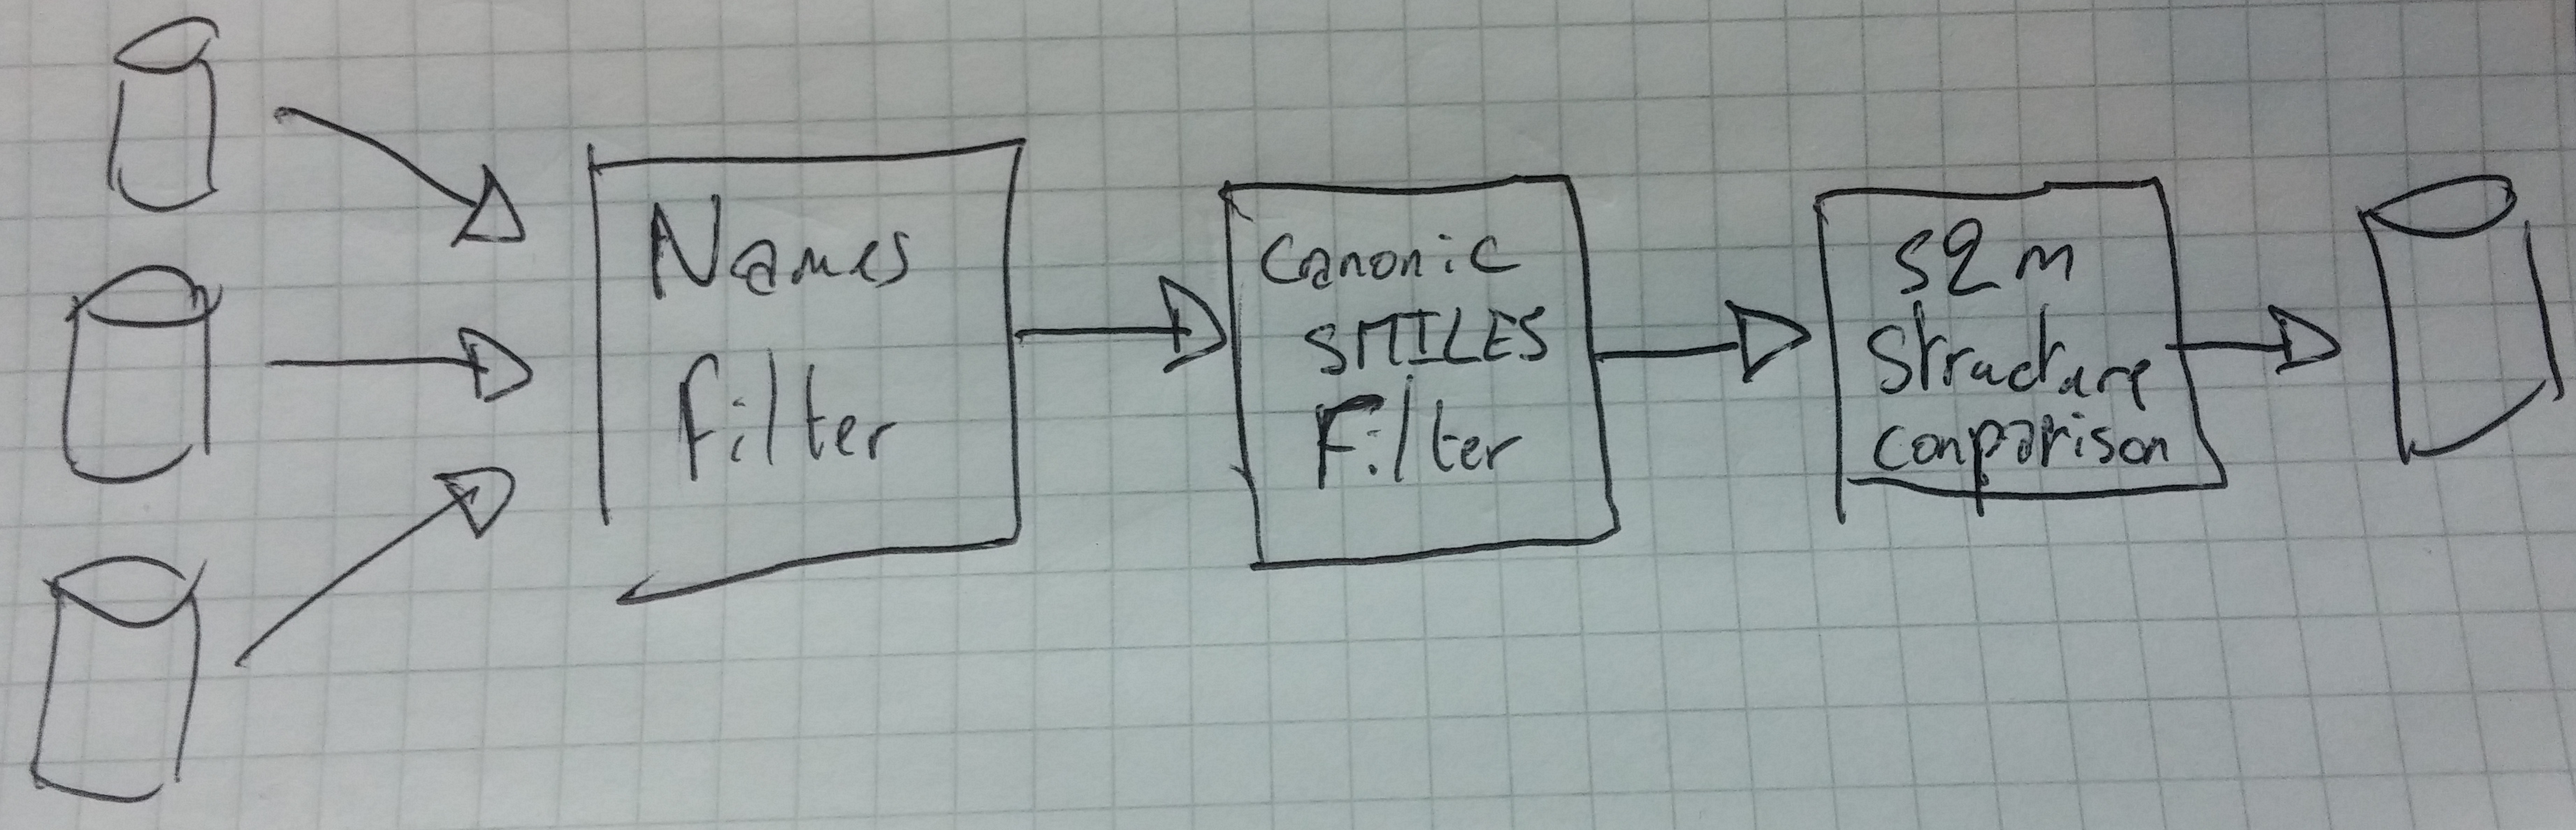 Names
Filter
Canonic
SMILES
Filter
S2m
Structure
conparison